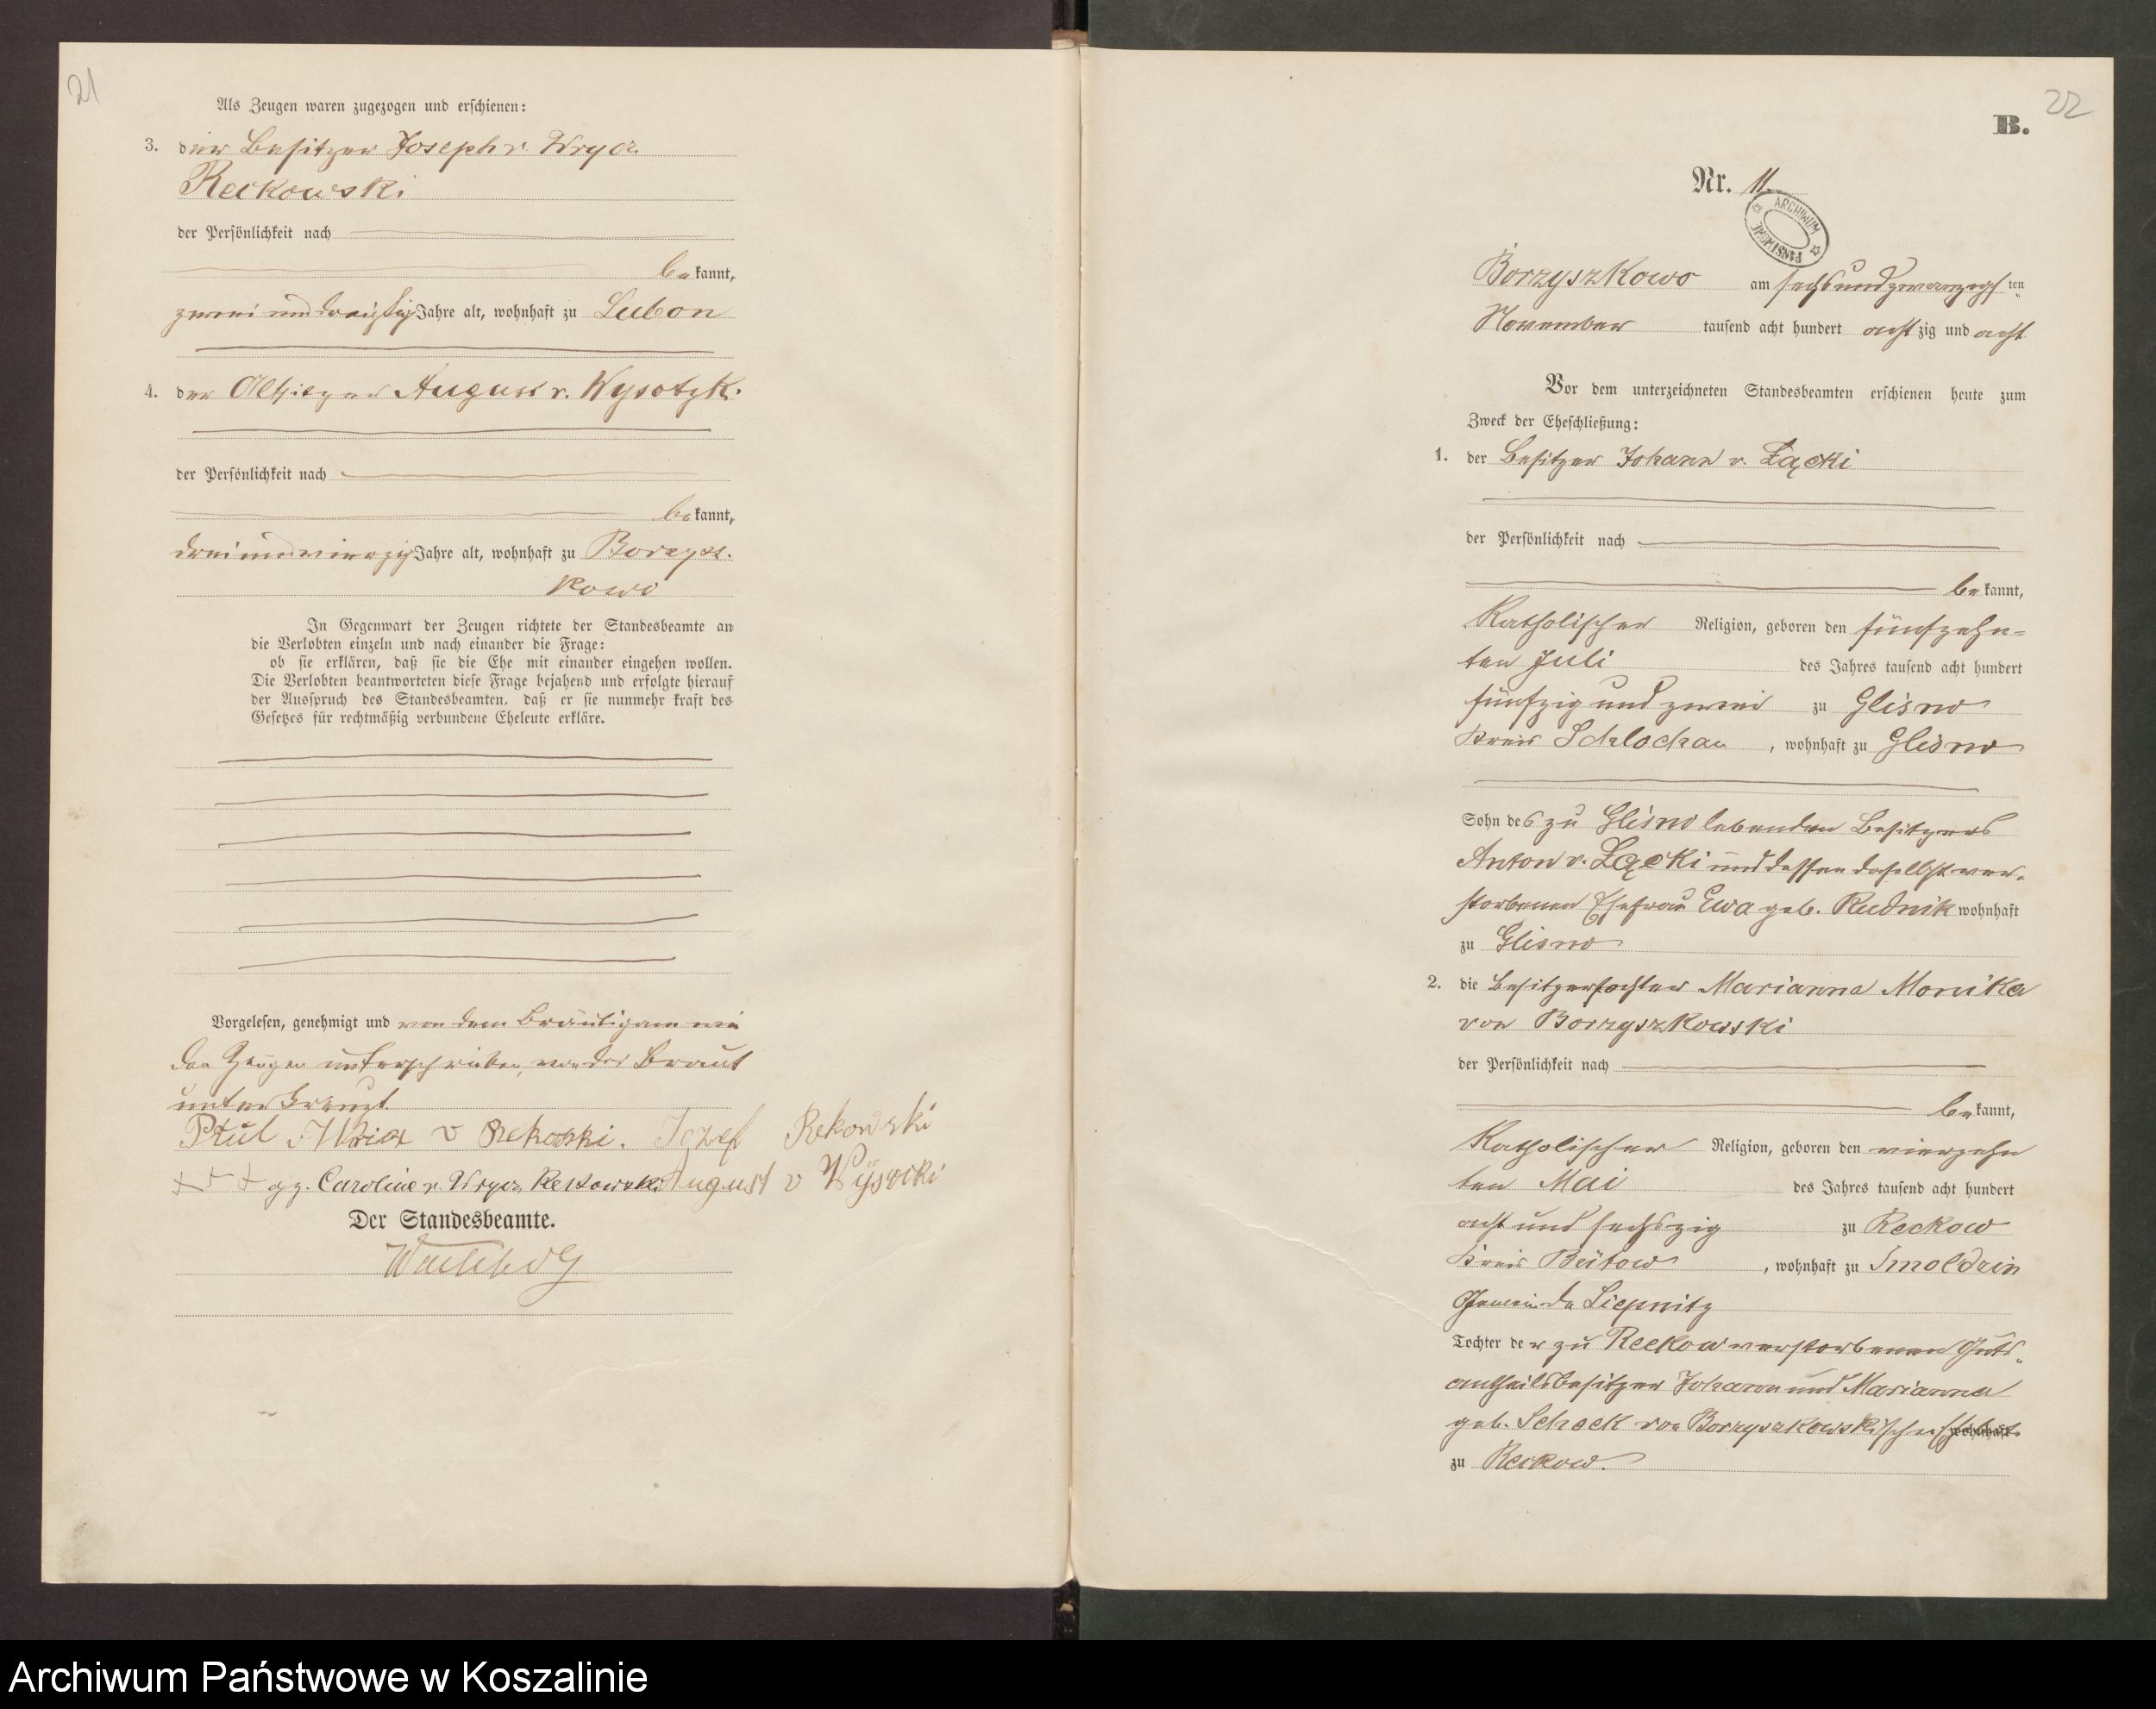 21
Als Zeugen waren zugezogen und erschienen:
3. der Besitzer Joseph v. Wrycz
Reckowski
der Persönlichkeit nach
bekannt,
zwei und dreißig Jahre alt, wohnhaft zu Lubon
4. der Altsitzer August v. Wysotzki
der Persönlichkeit nach
bekannt,
drei und vierzig Jahre alt, wohnhaft zu Borzysz-
kowo
In Gegenwart der Zeugen richtete der Standesbeamte an
die Verlobten einzeln und nach einander die Frage:
ob sie erklären, daß sie die Ehe mit einander eingehen wollen.
Die Verlobten beantworteten diese Frage bejahend und erfolgte hierauf
der Ausspruch des Standesbeamten, daß er sie nunmehr kraft des
Gesetzes für rechtmäßig verbundene Eheleute erkläre.
Vorgelesen, genehmigt und von dem Bräutigam wie
den Zeugen unterschrieben, von der Braut
unterkreuzt.
v Rekowski. Jozef Rekowski
+ + + gz. Caroline v. Wrycz Reckowski August v Wÿsocki
Der Standesbeamte.
22
B.
Nr. 11.
ARCHIWUM PAŃSTWOWE
Borzyszkowo am sechsundzwanzigsten
November tausend acht hundert achtzig und acht
Vor dem unterzeichneten Standesbeamten erschienen heute zum
Zweck der Eheschließung:
1. der Besitzer Johann v. Łącki
der Persönlichkeit nach
bekannt,
Katholischer Religion, geboren den fünfzehn-
ten Juli des Jahres tausend acht hundert
fünfzig und zwei zu Glisno
Kreis Schlochau, wohnhaft zu Glisno
Sohn des zu Glisno lebenden Besitzers
Anton v. Łącki und dessen daselbst ver-
storbenen Ehefrau Ewa geb. Rudnik wohnhaft
zu Glisno
2. die Besitzertochter Marianna Monika
von Borzyszkowski
der Persönlichkeit nach
bekannt,
Katholischer Religion, geboren den vierzehn
ten Mai des Jahres tausend acht hundert
acht und sechszig zu Reckow
Kreis Bütow, wohnhaft zu Smoldzin
Gemeinde Liepnitz
Tochter der zu Reckow verstorbenen Guts-
antheilsbesitzer Johann und Marianna
geb. Schock von Borzyszkowskischen wohnhaft
zu Reckow.
Archiwum Państwowe w Koszalinie